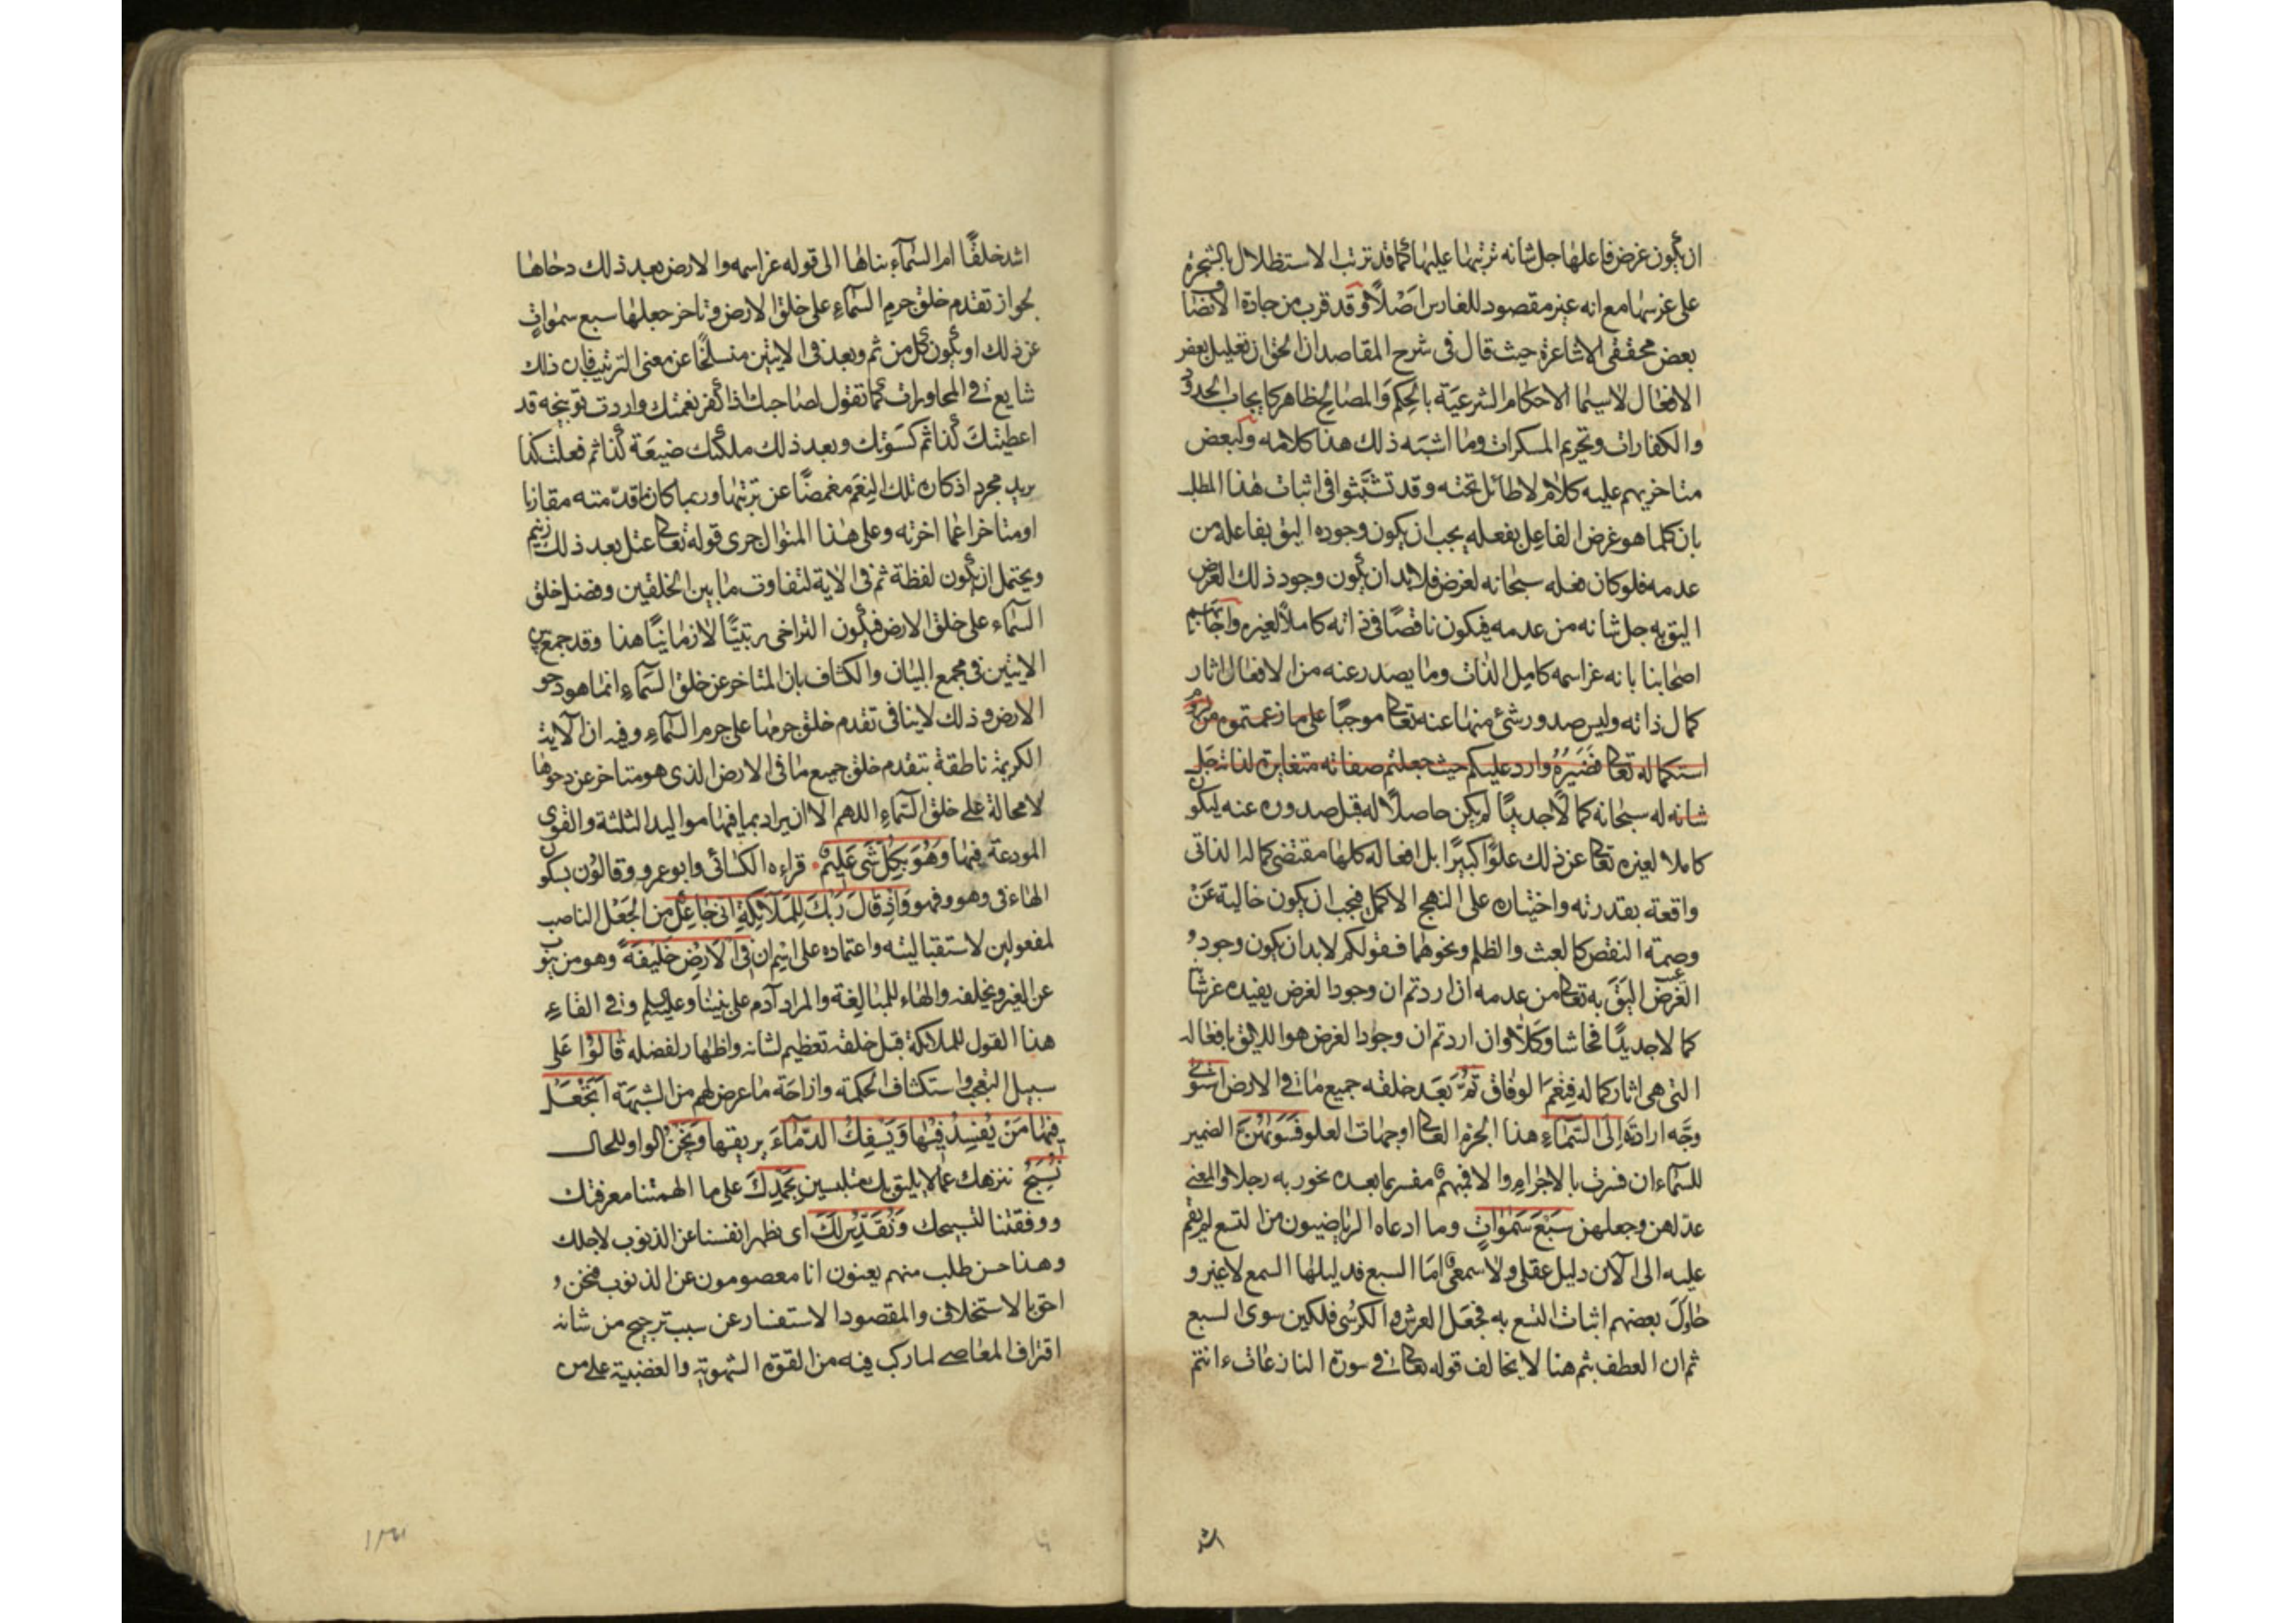 ان يكون غرض فاعلها جل شانه ترتبها عليها كما قد ترتب الاستظلال بالشجرة
على غرسها مع انه غير مقصود للغارس اصلا وقد قرب من جادة الانصا
بعض محققى الاشاعرة حيث قال فى شرح المقاصد ان الحق ان تعليل بعض
الافعال لاسيما الاحكام الشرعية بالحكم والمصالح ظاهر كايجاب الحدود
والكفارات وتحريم المسكرات وما اشبه ذلك هذا كلامه ولبعض
متاخريهم عليه كلام لا طائل تحته وقد تشبثوا فى اثبات هذا المطلب
بان كلما هو غرض الفاعل بفعله يجب ان يكون وجوده اليق بفاعله من
عدمه فلو كان فعله سبحانه لغرض فلا بد ان يكون وجود ذلك الغرض
اليق به جل شانه من عدمه فيكون ناقصًا فى ذاته كاملاً لغيره واجابهم
اصحابنا بانه عز اسمه كامل الذات وما يصدر عنه من الافعال اثار
كمال ذاته وليس صدور شئ منها عنه تعالى موجبًا على ما زعمتموه من
استكماله تعالى فضيره وارد عليكم حيث جعلتم صفاته متغايرة لذاته جل
شانه له سبحانه كمالا جديدًا لم يكن حاصلاً له قبل صدوره عنه ليكون
كاملا لغيره تعالى عن ذلك علوًا كبيرًا بل افعاله كلها مقتضى كماله الذاتى
واقعة بقدرته واختياره على النهج الاكمل فيجب ان يكون خالية عن
وصمة النقص كالعبث والظلم ونحوهما فقولكم لا بد ان يكون وجود
الغرض اليق به تعالى من عدمه ان اردتم ان وجود الغرض يفيده عز شانه
كمالا جديدًا فحاشا وكلا وان اردتم ان وجود الغرض هو اللايق بافعاله
التى هى اثار كماله فنعم الوفاق ثم بعد خلقه جميع ما فى الارض استوى
وجه ارادته الى السماء هذا الجرم العالى او جهات العلو فسويهن الضمير
للسماء ان فسرت بالاجرام والا فمبهم مفسر بما بعده نحو ربه رجلا والمعنى
عدلهن وجعلهن سبع سموات وما ادعاه الرياضيون من التسع لم يقم
عليه الى الآن دليل عقلى ولا سمعى اما السبع فدليلها السمع لا غير و
حاول بعضهم اثبات التسع به فجعل العرش والكرسى فلكين سوى السبع
ثم ان العطف بثم هنا لا يخالف قوله تعالى فى سورة النازعات ءانتم
اشد
اشد خلقًا ام السماء بناها الى قوله عز اسمه والارض بعد ذلك دحاها
لجواز تقدم خلق جرم السماء على خلق الارض وتاخر جعلها سبع سموات
عن ذلك او يكون كل من ثم وبعد فى الايتين منسلخًا عن معنى الترتيب فان ذلك
شايع فى المحاورات كما تقول لصاحبك اذا كفر نعمتك واردت توبيخه قد
اعطيتك كذا ثم كسوتك وبعد ذلك ملكتك ضيعة كذا ثم فعلت كذا
تريد مجرد اذكاره تلك النعم مغمضًا عن ترتبها وربما كان ما قدمته مقارنا
او متاخرا عما اخرته وعلى هذا المنوال جرى قوله تعالى عتل بعد ذلك زنيم
ويحتمل ان يكون لفظة ثم فى الاية لتفاوت ما بين الخلقين وفضل خلق
السماء على خلق الارض فيكون التراخى رتبيًا لا زمانيًا هذا وقد جمع بين
الايتين فى مجمع البيان والكشاف بان المتاخر عن خلق السماء انما هو دحو
الارض وذلك لا ينافى تقدم خلق جرمها على جرم السماء وفيه ان الآية
الكريمة ناطقة بتقدم خلق جميع ما فى الارض الذى هو متاخر عن دحوها
لا محالة على خلق السماء اللهم الا ان يراد بما فيها مواليد الثلثة والقوى
المودعة فيها وهو بكل شى عليم قراءه الكسائى وابو عمرو وقالون بسكون
الهاء فى وهو وفهو واذ قال ربك للملائكة انى جاعل من الجعل الناصب
لمفعولين لاستقباليته واعتماده على اسم ان فى الارض خليفة وهو من ينوب
عن الغير ويخلفه والهاء للمبالغة والمراد آدم على نبينا وعليه السلم وفى القاء
هذا القول للملائكة قبل خلقه تعظيم لشانه واظهار لفضله قالوا على
سبيل التعجب واستكشاف الحكمة وازاحة ما عرض لهم من الشبهة اتجعل
فيها من يفسد فيها ويسفك الدماء يريقها ونحن الواو للحال
نسبح ننزهك عما لا يليق بك متلبسين بحمدك على ما الهمتنا معرفتك
ووفقتنا لتسبيحك ونقدس لك اى نطهر انفسنا عن الذنوب لاجلك
وهذا حسن طلب منهم يعنون انا معصومون عن الذنوب فنحن
احق بالاستخلاف والمقصود الاستفسار عن سبب ترجيح من شانه
اقتراف المعاصى لما ركب فيه من القوة الشهوية والغضبية على من